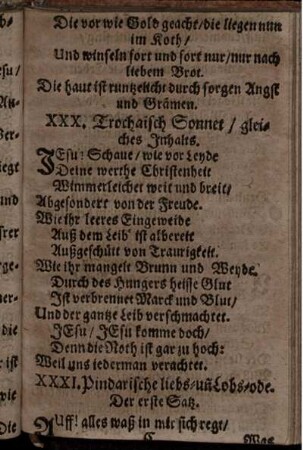 Die vor wie Gold geacht / die liegen nun
im Koth /
Und winseln fort und fort nur / nur nach
liebem Brot.
Die haut ist runtzelicht durch sorgen Angst
und Grämen.
XXX. Trochaisch Sonnet / glei-
ches Inhalts.
JEsu! Schaue / wie vor Leyde
Deine werthe Christenheit
Wimmerleichet weit und breit /
Abgesondert von der Freude.
Wie ihr leeres Eingeweide
Auß dem Leib' ist albereit
Außgeschütt von Traurigkeit.
Wie ihr mangelt Brunn und Weyde.
Durch des Hungers heisse Glut
Ist verbrennet Marck und Blut /
Und der gantze Leib verschmachtet.
JEsu / JEsu komme doch /
Denn die Noth ist gar zu hoch:
Weil uns iederman verachtet.
XXXI. Pindarische liebs / uñ Lobs / ode.
Der erste Satz.
AUff! alles waß in mir sich regt /
C Was